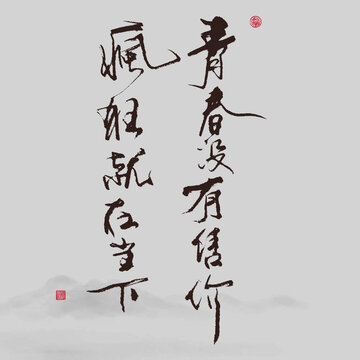 青春没有售价
瘋狂就在当下